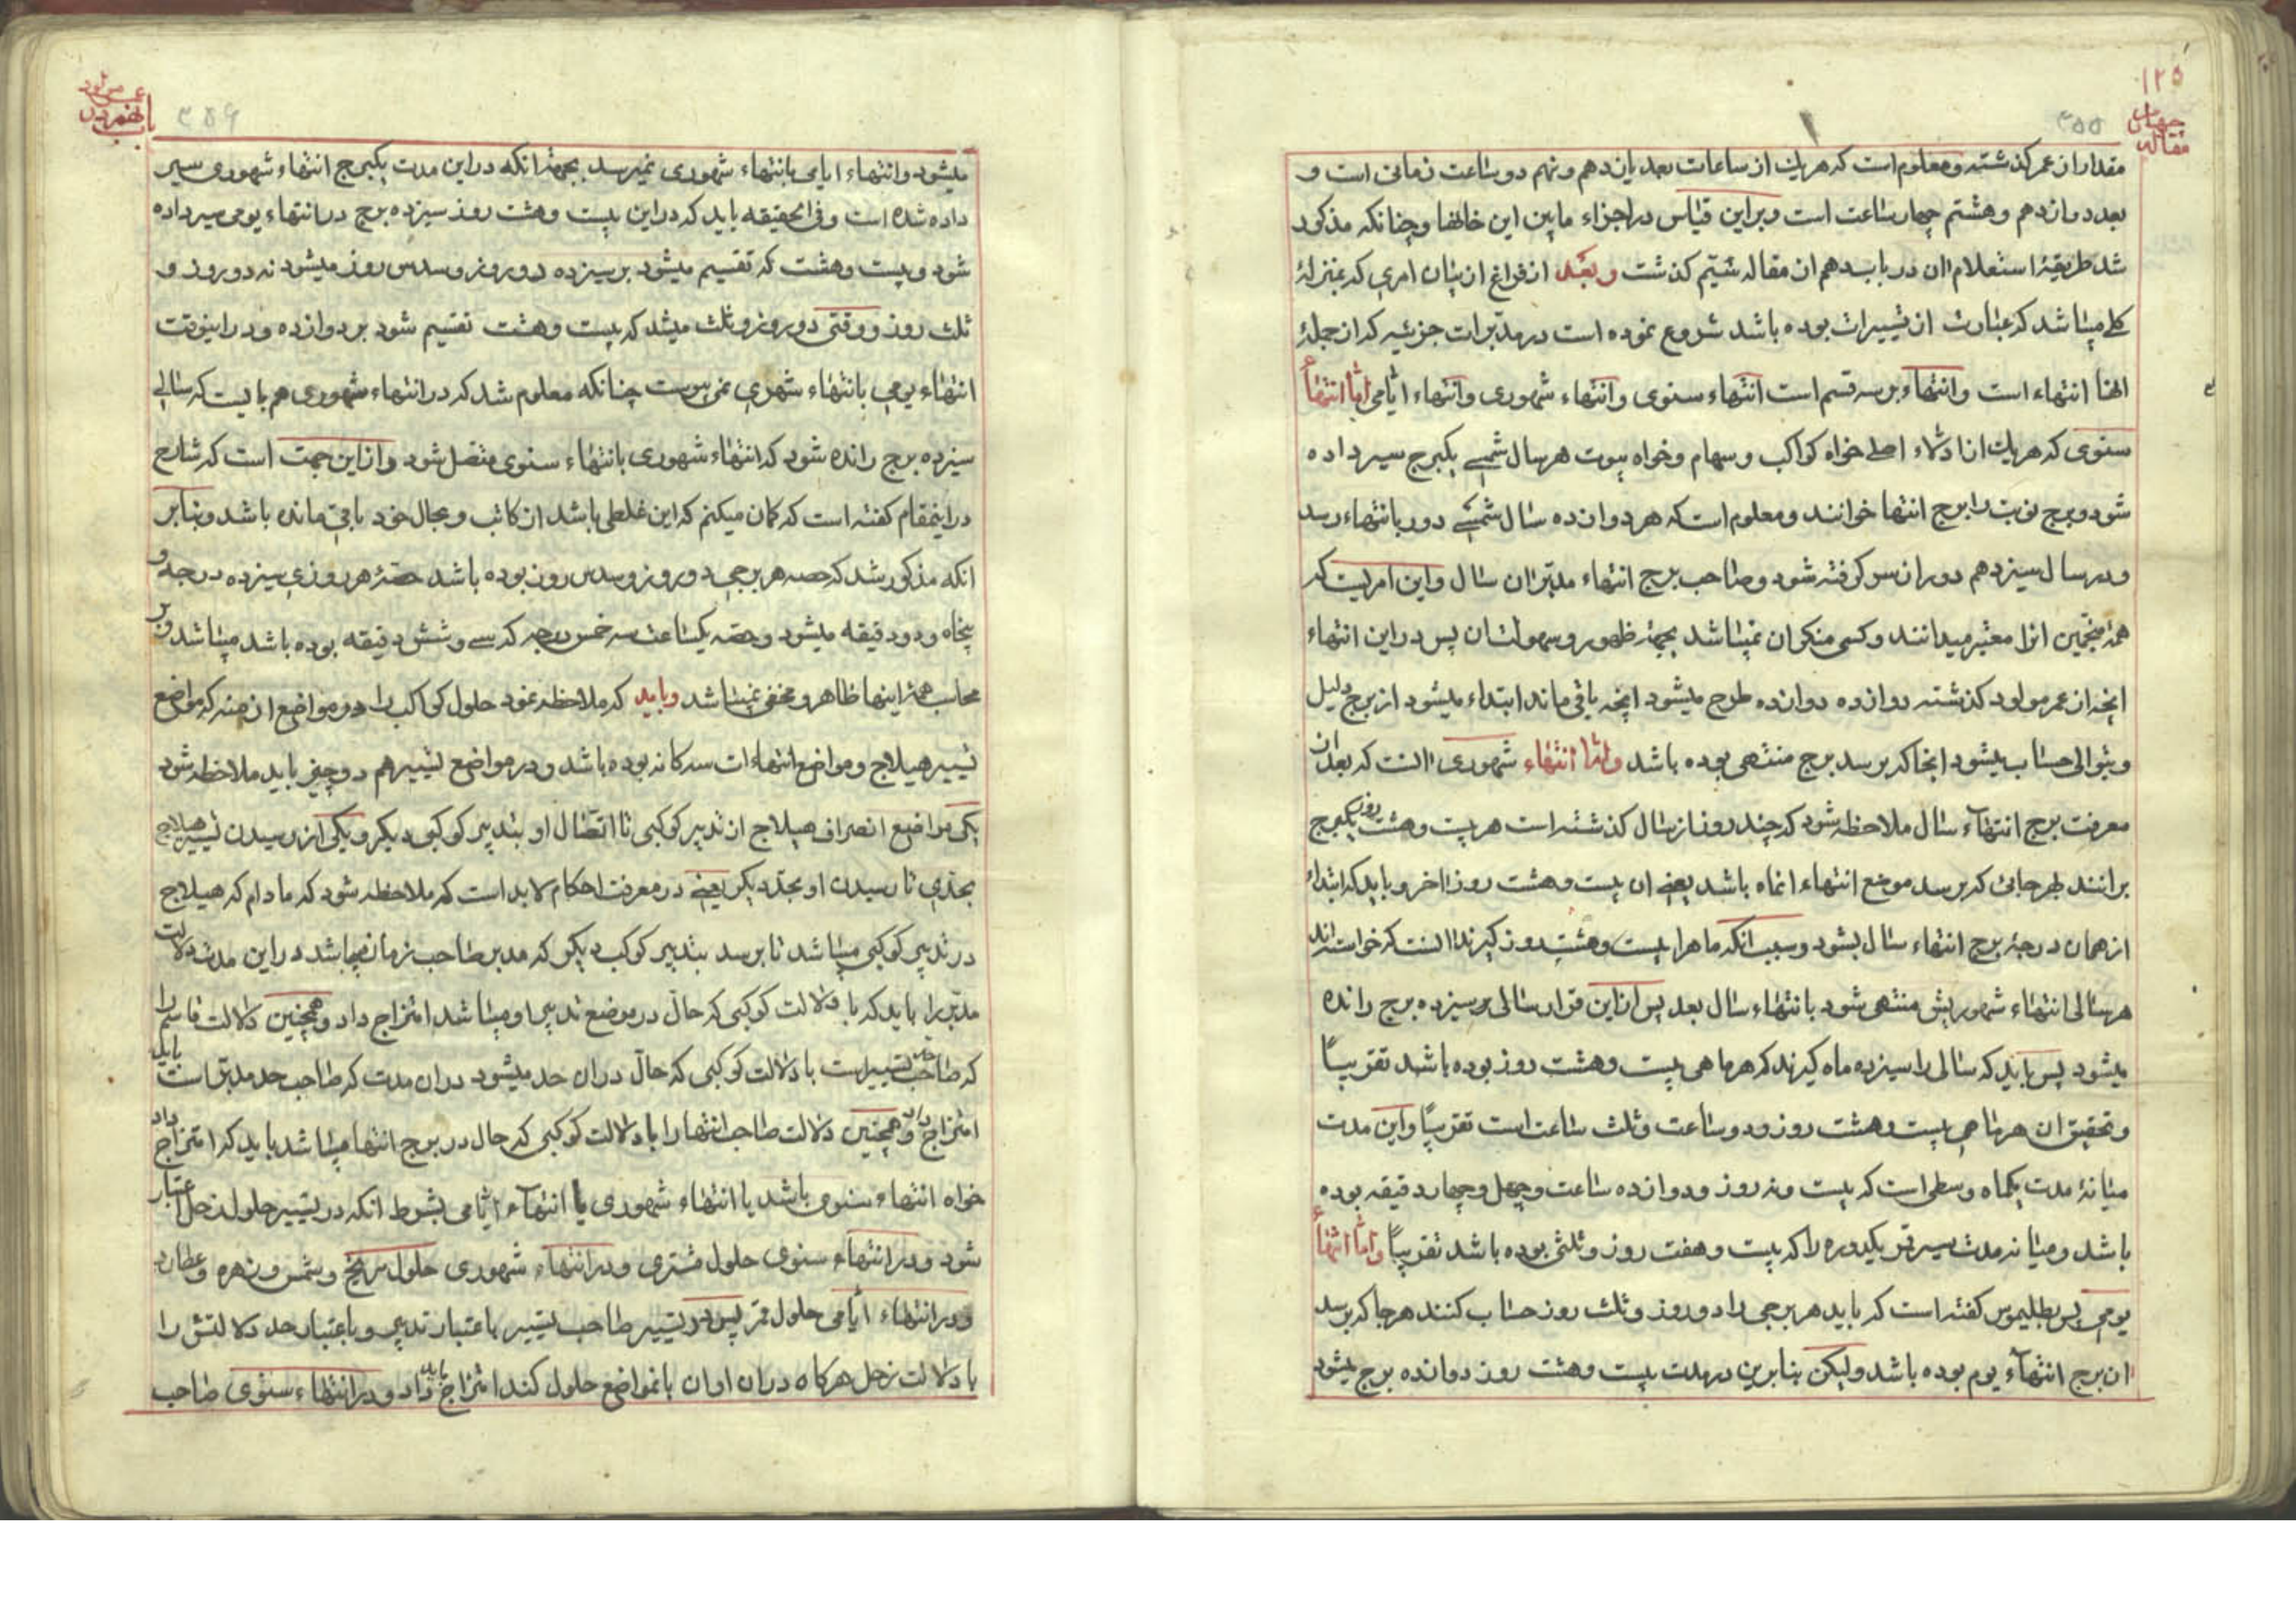 ۱۲۵
چهارم
مقاله
۳۵۵
مقدار از عمر گذشته و معلوم است که هر یک از ساعات بعد یازدهم و نهم دو ساعت زمانی است و
بعد دوازدهم و هشتم چهار ساعت است و بر این قیاس در اجزاء مابین این خانها و چنانکه مذکور
شد طریقهٔ استعلام ان در باب دهم از مقاله سیم گذشت و بعد از فراغ از بیان امری که بمنزلهٔ
کلی میباشد که عبارت از تسییرات بوده باشد شروع نموده است در مدبرات جزئیه که از جملهٔ
انها انتهاء است و انتهاء بر سه قسم است انتهاء سنوی و انتهاء شهوری و انتهاء ایامی اما انتهاء
سنوی که هر یک از ادلاء اصلی خواه کواکب و سهام و خواه بیوت هر سال شمسی یکبرج سیر داده
شود و برج نوبت را برج انتها خوانند و معلوم است که هر دوازده سال شمسی دور بانتهاء رسد
و در سال سیزدهم دور از سر گرفته شود و صاحب برج انتهاء مدبر ان سال و این امریست که
همهٔ منجمین انرا معتبر میدانند و کسی منکر ان نمیباشد بجهة ظهور و سهولت ان پس در این انتهاء
انچه از عمر مولود گذشته دوازده دوازده طرح میشود انچه باقی ماند ابتداء میشود از برج دلیل
و بتوالی حساب میشود انجا که برسد برج منتهی بوده باشد و اما انتهاء شهوری انست که بعد از ان
معرفت برج انتهاء سال ملاحظه شود که چند روز از سال گذشته است هر بیست و هشت روز یکبرج
برانند بهر جائی که برسد موضع انتهاء انماه باشد یعنی ان بیست و هشت روز اخر و باید که ابتداء
از همان درجهٔ برج انتهاء سال بشود و سبب انکه ماه را بیست و هشت روز گیرند انست که خواسته‌اند
هر سالی انتهاء شهوریش منتهی شود بانتهاء سال بعد پس از این قرار سالی بر سیزده برج رانده
میشود پس باید که سالی را سیزده ماه گیرند که هر ماهی بیست و هشت روز بوده باشد تقریباً
و تحقیق ان هر ماهی بیست و هشت روز و دو ساعت و ثلث ساعت است تقریباً و این مدت
میانهٔ مدت یکماه وسطی است که بیست و نه روز و دوازده ساعت و چهل و چهار دقیقه بوده
باشد و میانه مدت سیر قمر یکدوره را که بیست و هفت روز و ثلثی بوده باشد تقریباً و اما انتهاء
یومی پس بطلیموس گفته است که باید هر برجی را دو روز و ثلث روز حساب کنند هر جا که برسد
ان برج انتهاء یوم بوده باشد ولیکن بنابرین در مدت بیست و هشت روز دوازده برج میشود
۳۵۶
میشود و انتهاء ایامی بانتهاء شهوری نمیرسد بجهة انکه در این مدت یکبرج انتهاء شهوری سیر
داده شده است و فی الحقیقه باید که در این بیست و هشت روز سیزده برج در انتهاء یومی سیر داده
شود و بیست و هشت که تقسیم میشود بر سیزده دو روز و سدس روز میشود نه دو روز و
ثلث روز و وقتی دو روز و ثلث میشد که بیست و هشت تقسیم شود بر دوازده و در اینوقت
انتهاء یومی بانتهاء شهری نمی‌پیوست چنانکه معلوم شد که در انتهاء شهوری هم بایست که سالی
سیزده برج رانده شود که انتهاء شهوری بانتهاء سنوی متصل شود و از این جهت است که شارح
در اینمقام گفته است که گمان میکنم که این غلطی باشد از کاتب و بحال خود باقی مانده باشد و بنابر
انکه مذکور شد که حصه هر برجی دو روز و سدس روز بوده باشد حصهٔ هر روزی سیزده درجه و
پنجاه و دو دقیقه میشود و حصه یکساعت سه خمس درجه که سی و شش دقیقه بوده باشد میباشد و بر
محاسب همهٔ اینها ظاهر و مخفی نمیباشد و باید که ملاحظه نمود حلول کواکب را در مواضع ازمنه که مواضع
تسییر هیلاج و مواضع انتهاءات سه‌کانه بوده باشد و در مواضع تسییر هم دو چیز باید ملاحظه شود
یکی مواضع انصراف هیلاج از تدبیر کوکبی تا اتصال او بتدبیر کوکب دیگر و یکی از رسیدن تسییر هیلاج
بحدی تا رسیدن او بحد دیگر یعنی در معرفت احکام لابد است که ملاحظه شود که مادام که هیلاج
در تدبیر کوکبی میباشد تا برسد بتدبیر کوکب دیگر که مدبر صاحب زمان میباشد در این مدت دلالت
مدبر را باید که با دلالت کوکبی که حال در موضع تدبیر او میباشد امتزاج داد و همچنین دلالت قاسم را
که صاحب حد تسییر است با دلالت کوکبی که حال در ان حد میشود در ان مدت که صاحب حد مدبر است باید
امتزاج داد و همچنین دلالت صاحب انتها را با دلالت کوکبی که حال در برج انتها میباشد باید که امتزاج داد
خواه انتهاء سنوی باشد یا انتهاء شهوری یا انتهاء ایامی بشرط انکه در تسییر حلول زحل اعتبار
شود و در انتهاء سنوی حلول مشتری و در انتهاء شهوری حلول مریخ و شمس و زهره و عطارد
و در انتهاء ایامی حلول قمر پس در تسییر صاحب تسییر باعتبار تدبیر و باعتبار حد دلالتش را
با دلالت زحل هرکاه در ان اوان بانمواضع حلول کند امتزاج باید داد و در انتهاء سنوی صاحب